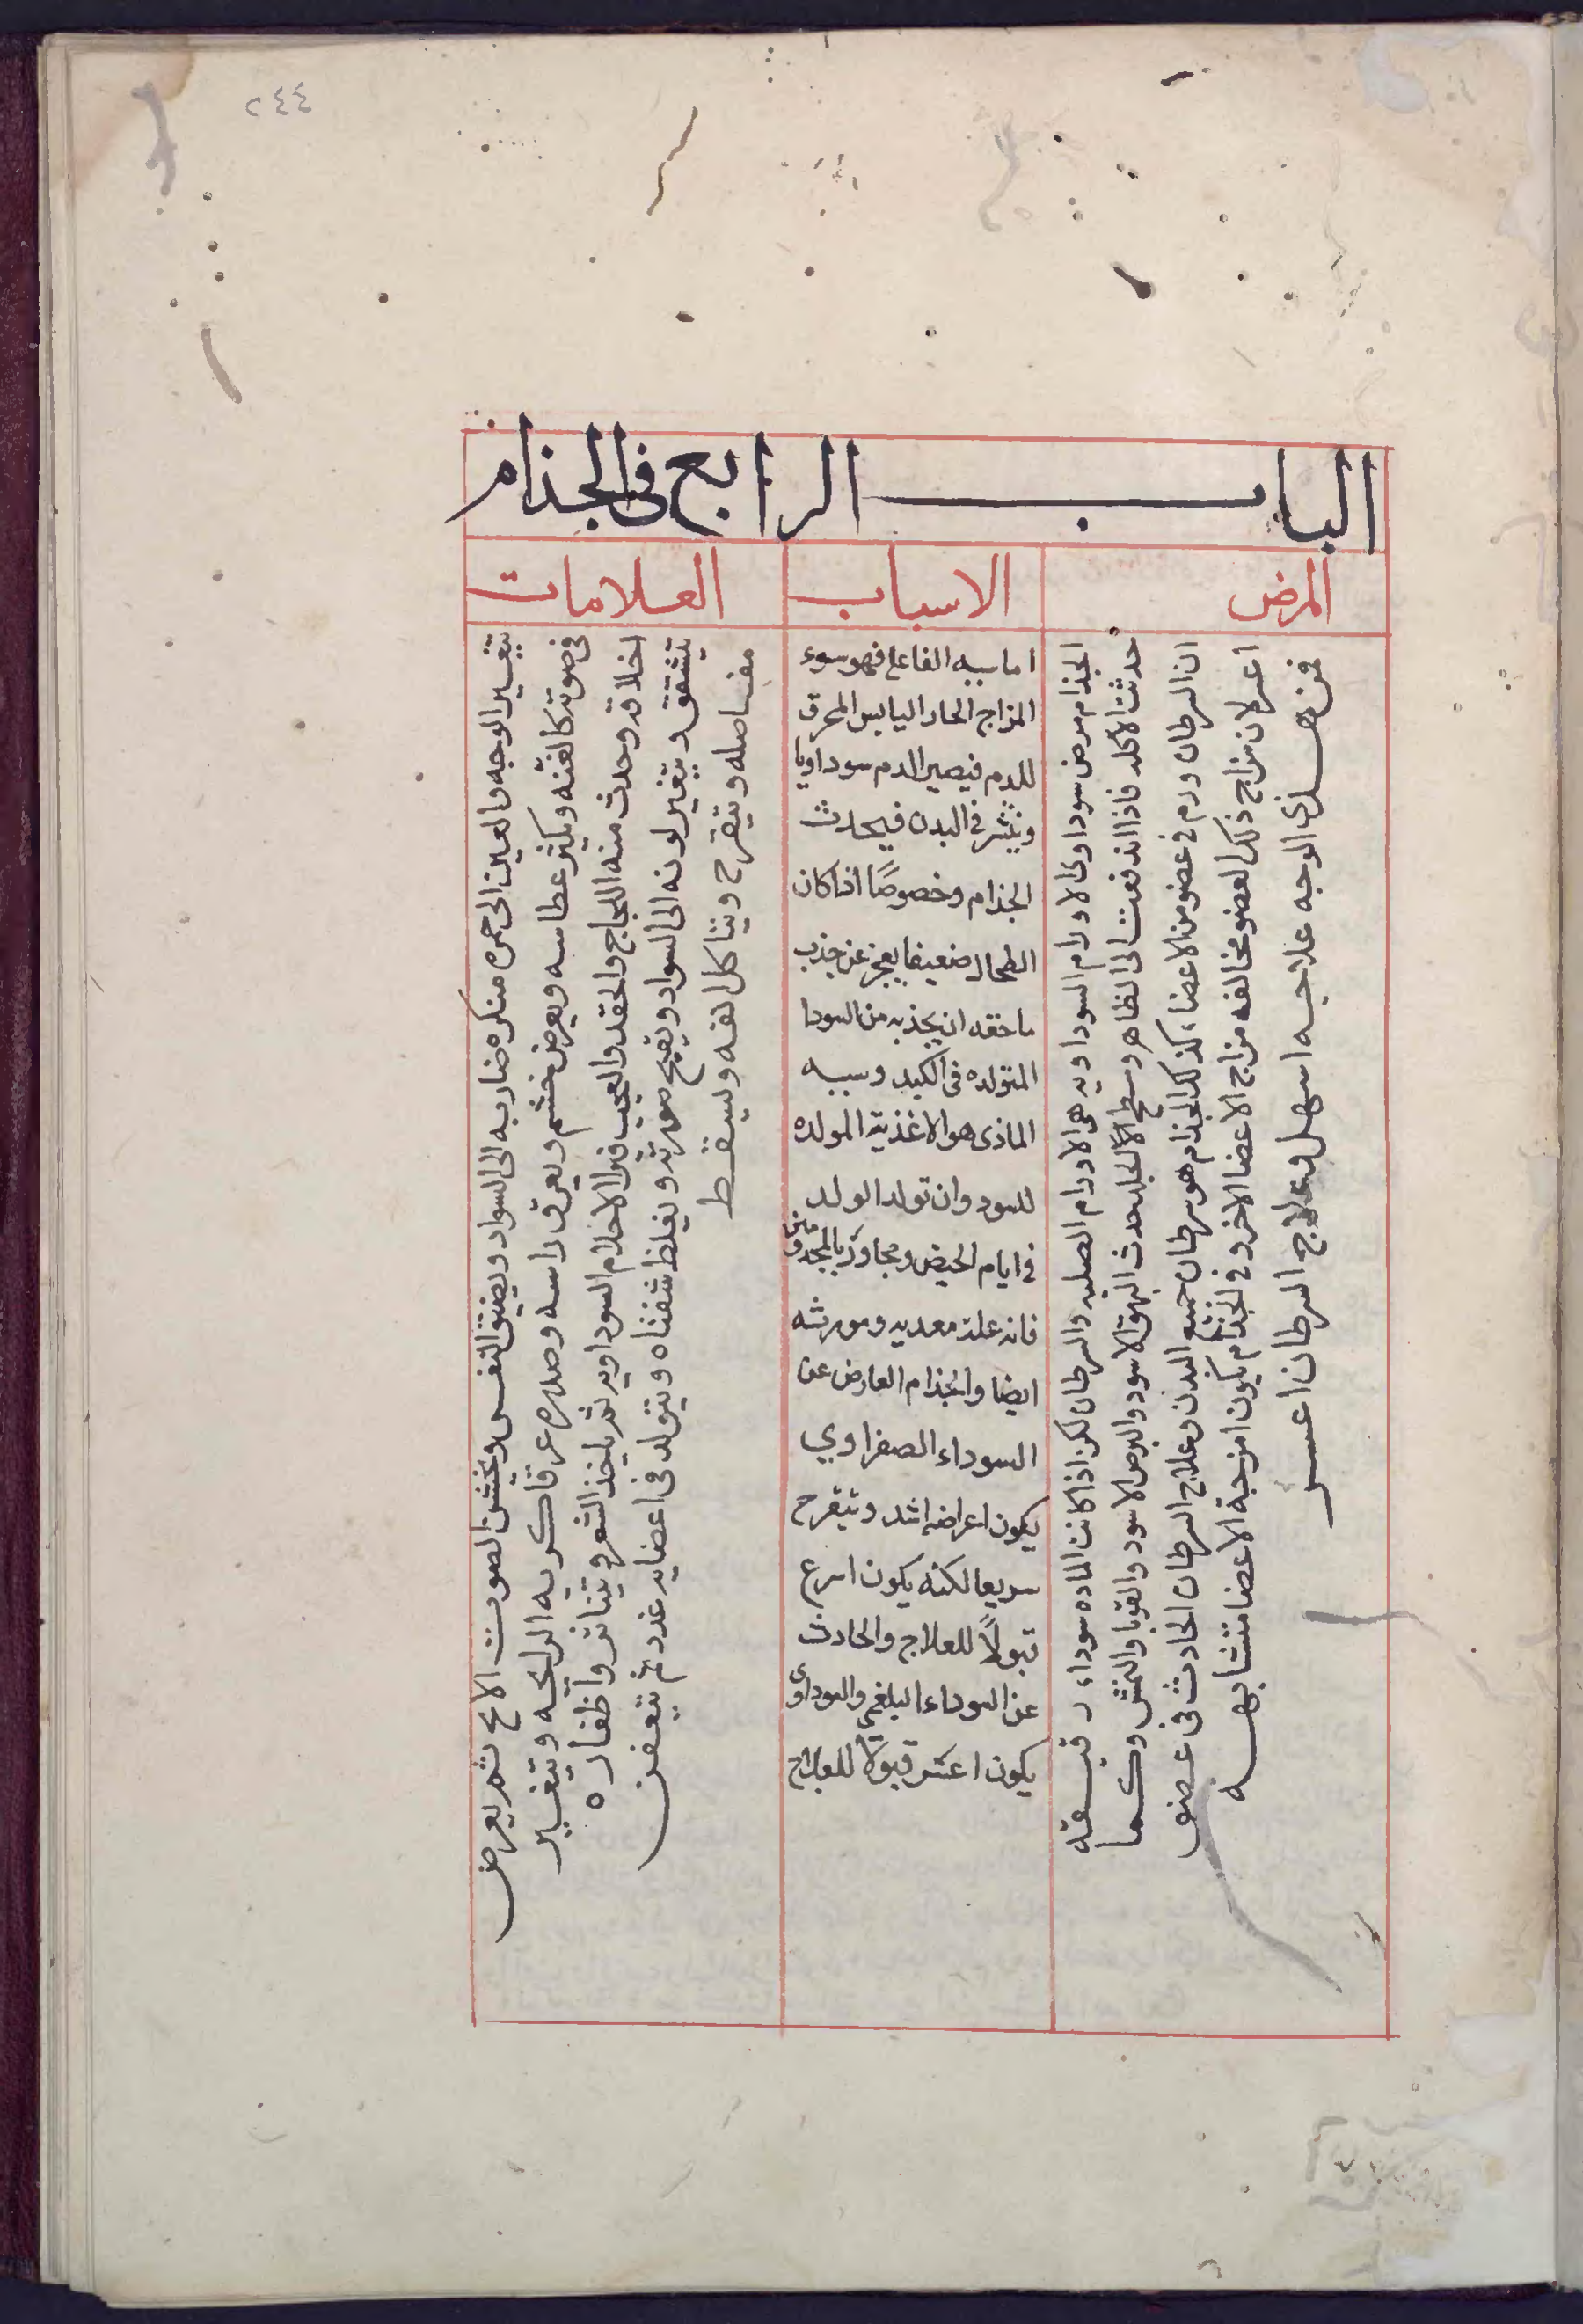 ٢٤٤
الباب الرابع فى الجذام
المرض
الاسباب
العلامات
الجذام مرض سوداوى لاورام السوداويه هى الاورام الصلبه والسرطان لكن اذا كانت الماده سوداء رقيقه
حدثت الاكله فاذا اندفعت الى الظاهر وسطح الجلد حدث البهق الاسود والبرص الاسود والقوبا والنمش وكما
ان السرطان ورم فى عضو من الاعضاء كذلك الجذام هو سرطان جميع البدن وعلاج السرطان الحادث فى عضو
اعسر لان مزاج ذلك العضو مخالفه مزاج الاعضا الاخر وفى الجذام يكون امزجة الاعضا متشابهه
فمن هذى الوجه علاجه اسهل وعلاج السرطان اعسر
اما سببه الفاعل فهو سوء
المزاج الحار اليابس المحرق
للدم فيصير الدم سوداويا
وينتشر فى البدن فيحدث
الجذام وخصوصًا اذا كان
الطحال ضعيفا يعجز عن جذب
ما حقه ان يجذبه من السودا
المتولده فى الكبد وسببه
الماذى هو الاغذية المولده
للسود وان تولد الولد
فى ايام الحيض ومجاورة المجذومين
فانه علة معديه ومورثه
ايضا والجذام العارض عن
السوداء الصفراوي
يكون اعراضه اشد وتتقرح
سريعا لكنه يكون اسرع
قبولًا للعلاج والحادث
عن السوداء البلغمي والسوداوى
يكون اعسر قبولًا للعلاج
تتغير الوجه والعين الى حمره منكره ضاربه الى السواد ويضيق النفس ويخشن الصوت الابح ثم يعرض
فى صوته كالغنه ويكثر عطاسه ويعرض خشم ويعرق راسه وصدره عرقا كريه الرايحه ويتغير
اخلاقه وحدث منه اللجاج والحقد والعجب فى الاحلام السوداويه ثم ياخذ الشعر يتناثر واظفاره
يتشقق ويتغير لونه الى السواد ويقبح صورته ويغلظ شفتاه ويتولد فى اعضايه غدد ثم تتعفن
مفاصله ويتقرح ويتاكل انفه ويسقط